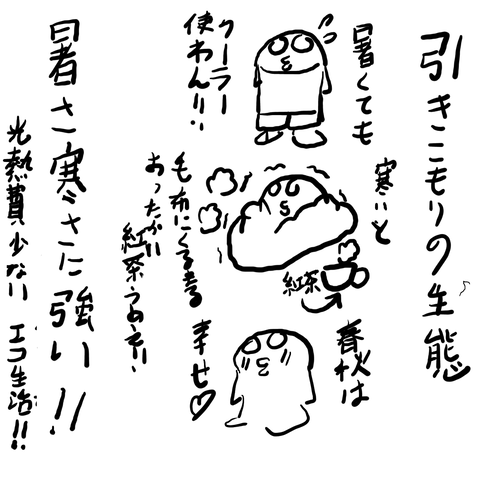 引きこもりの生態
暑くても
クーラー
使わん!!
寒いと
紅茶
毛布にくるまる
あったかい
紅茶うめぇ!!
春秋は
幸せ♡
暑さ寒さに強い!!
光熱費少ない エコ生活!!